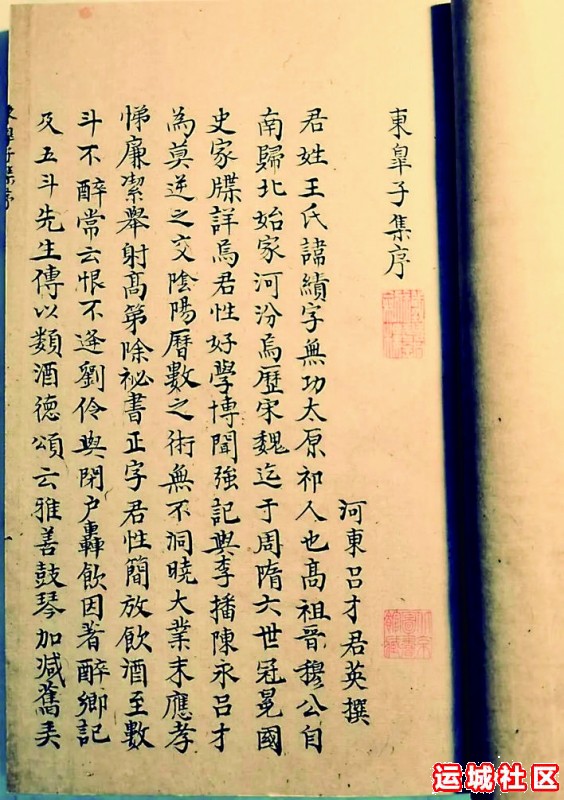 東皐子集序
河東呂才君英撰
君姓王氏諱績字無功太原祁人也髙祖晉穆公自
南歸北始家河汾焉歷宋魏迄于周隋六世冠冕國
史家牒詳焉君性好學博聞強記與李播陳永呂才
為莫逆之交陰陽曆數之術無不洞曉大業末應孝
悌廉潔舉射髙第除祕書正字君性簡放飲酒至數
斗不醉常云恨不逢劉伶與閉户轟飲因著醉鄉記
及五斗先生傳以類酒德頌云雅善鼓琴加减舊弄
東皐子集序
运城社区